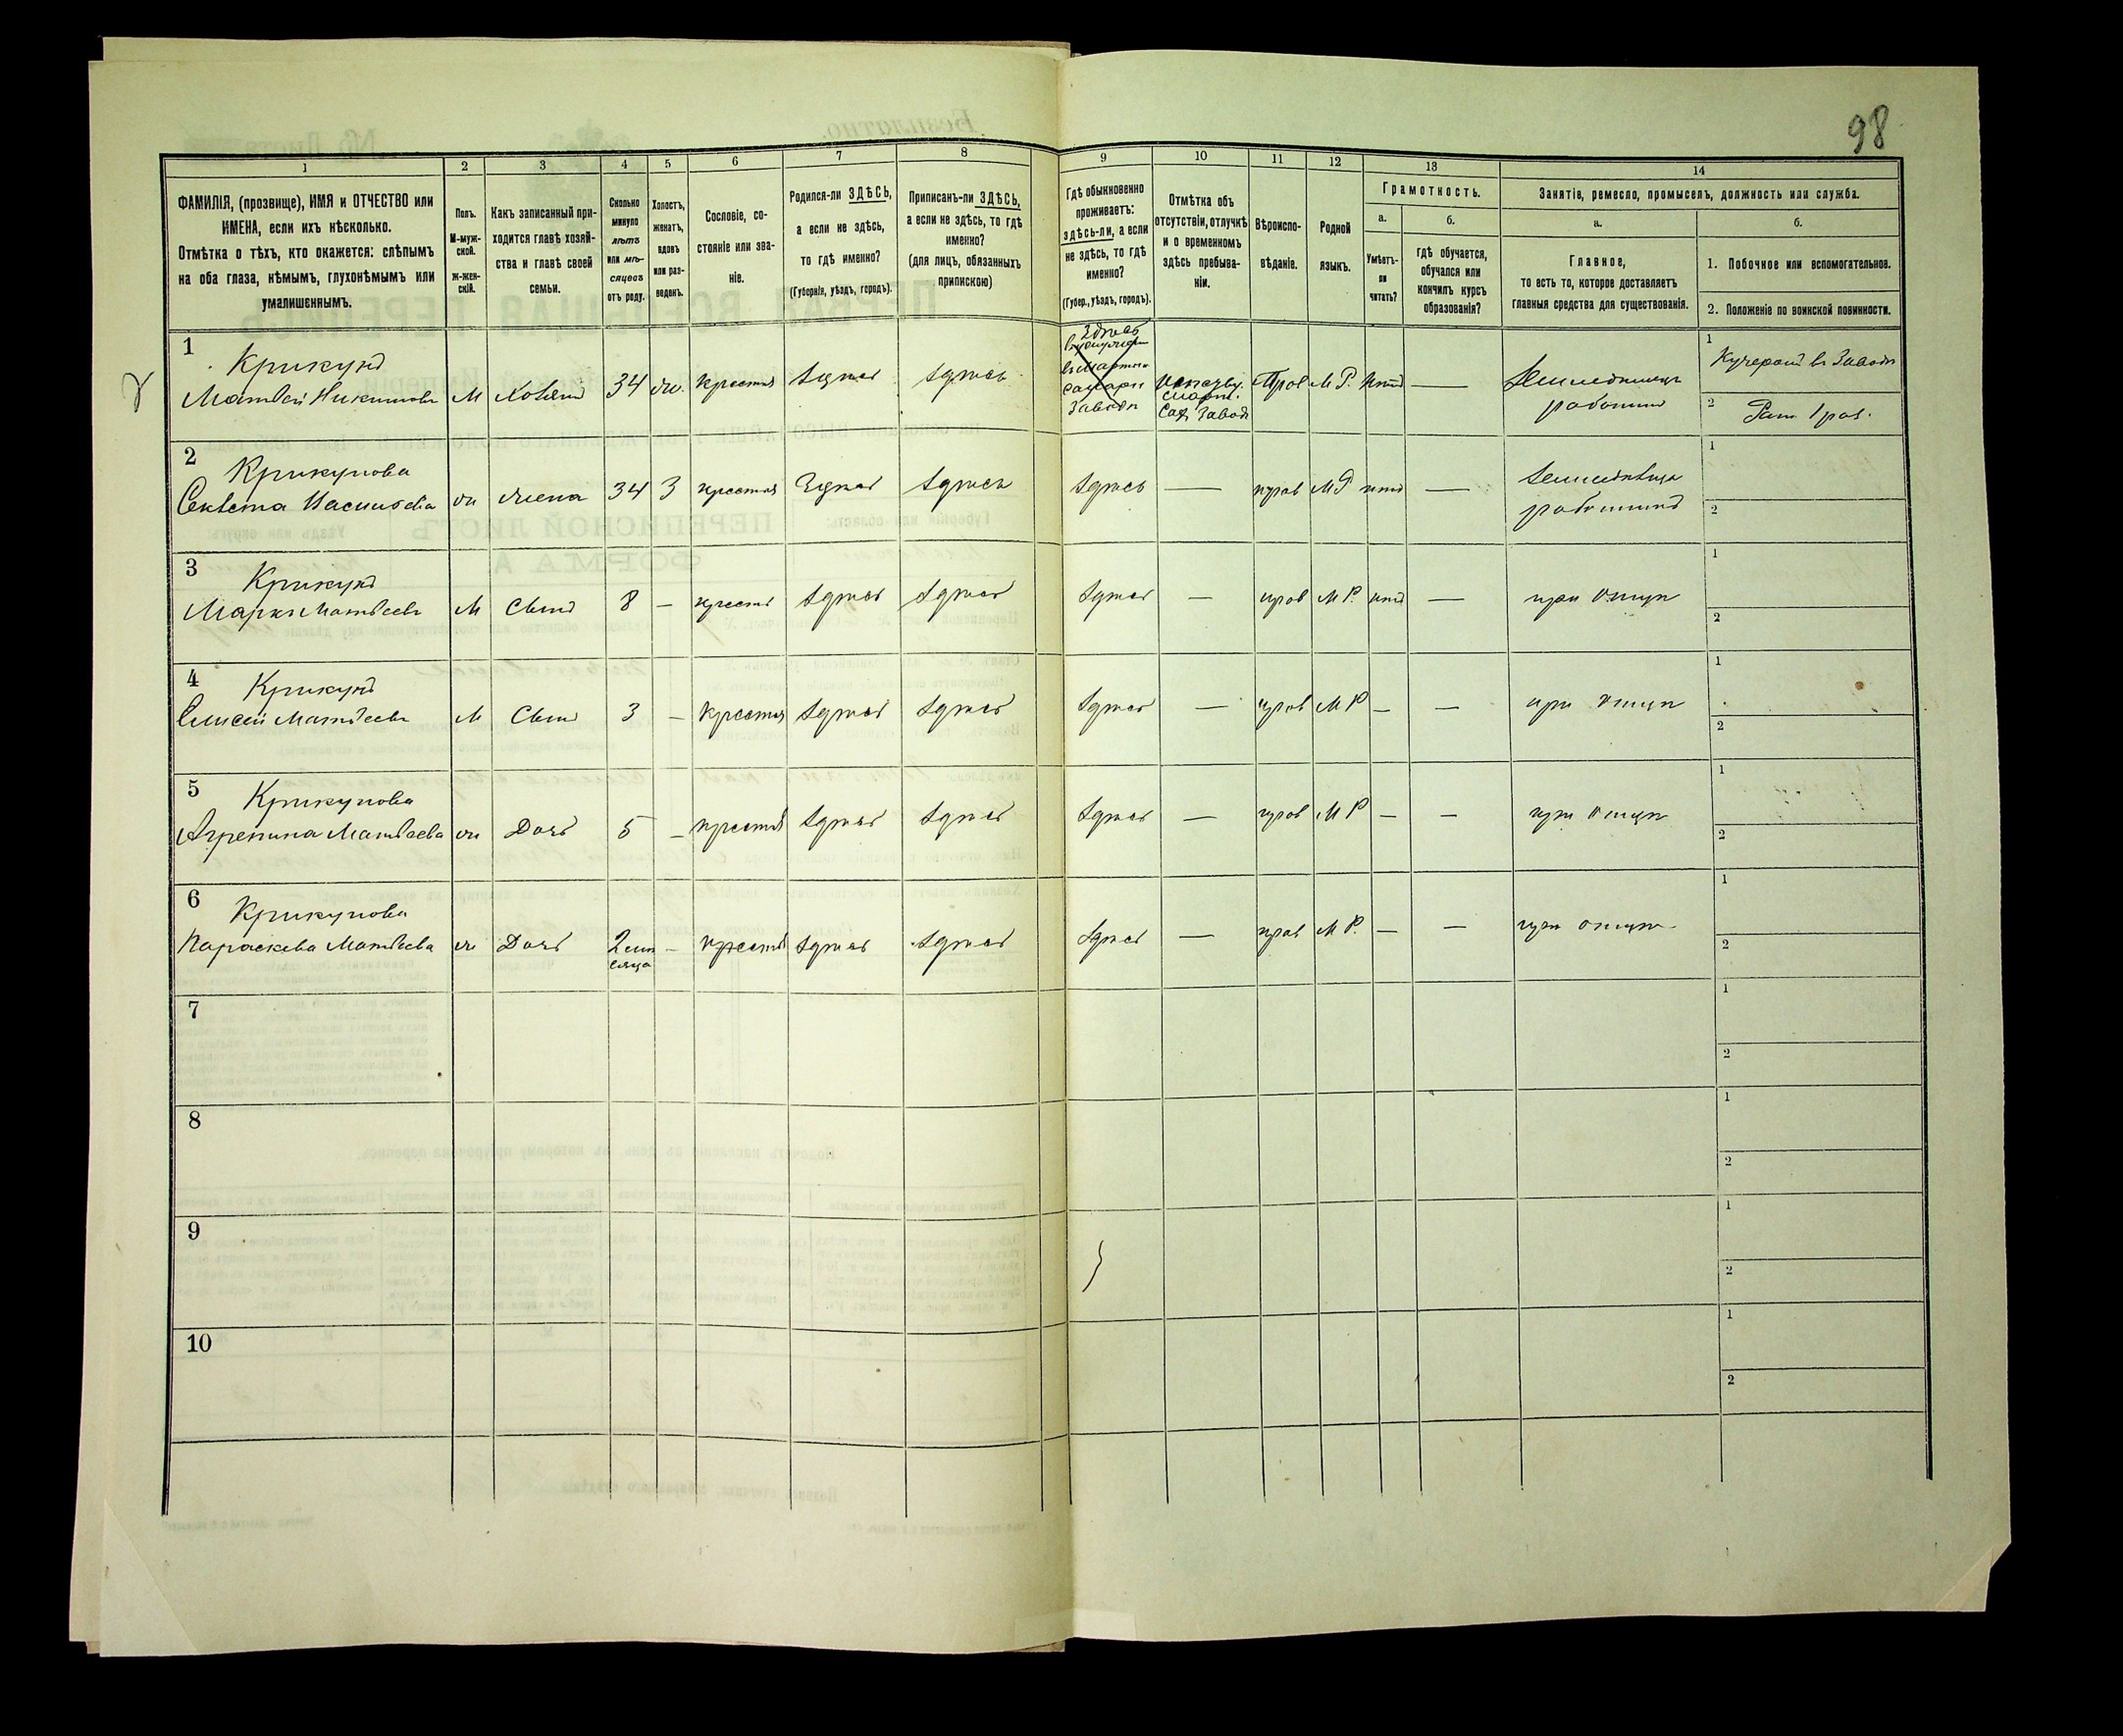 98
1
2
3
4
5
6
7
8
9
10
11
12
13
14
ФАМИЛІЯ, (прозвище), ИМЯ и ОТЧЕСТВО или
ИМЕНА, если ихъ нѣсколько.
Отмѣтка о тѣхъ, кто окажется: слѣпымъ
на оба глаза, нѣмымъ, глухонѣмымъ или
умалишеннымъ.
Полъ.
М-муж-
ской.
ж-жен-
скій.
Какъ записанный при-
ходится главѣ хозяй-
ства и главѣ своей
семьи.
Сколько
минуло
лѣтъ
или мѣ-
сяцевъ
отъ роду.
Холостъ,
женатъ,
вдовъ
или раз-
веденъ.
Сословіе, со-
стояніе или зва-
ніе.
Родился-ли ЗДѢСЬ,
а если не здѣсь,
то гдѣ именно?
(Губернія, уѣздъ, городъ).
Приписанъ-ли ЗДѢСЬ,
а если не здѣсь, то гдѣ
именно?
(для лицъ, обязанныхъ
припискою)
Гдѣ обыкновенно
проживаетъ:
здѣсь-ли, а если
не здѣсь, то гдѣ
именно?
(Губер., уѣздъ, городъ).
Отмѣтка объ
отсутствіи, отлучкѣ
и о временномъ
здѣсь пребыва-
ніи.
Вѣроиспо-
вѣданіе.
Родной
языкъ.
Грамотность.
а.
Умѣетъ-
ли
читать?
б.
Гдѣ обучается,
обучался или
кончилъ курсъ
образованія?
Занятіе, ремесло, промыселъ, должность или служба.
а.
Главное,
то есть то, которое доставляетъ
главныя средства для существованія.
б.
1. Побочное или вспомогательное.
2. Положеніе по воинской повинности.
1
Крикунъ
Матвей Никитовъ
М
Хозяинъ
34
ж.
крестья
здѣсь
здѣсь
Здѣсь
Заводѣ
Сах. Завод
Прав
М Р.
нѣтъ
—
1
Кучеромъ въ Заводѣ
2
Рат. 1 раз.
2
Крикунова
ж
жена
34
3
крестья
здѣсь
здѣсь
здѣсь
—
прав
М Р
нѣтъ
—
1
2
3
Крикунъ
Марко Матвеевъ
М
Сынъ
8
—
крестья
здѣсь
здѣсь
здѣсь
—
прав
М Р.
нѣтъ
—
при отцѣ
1
2
4
Крикунъ
Елисей Матвеевъ
М
Сынъ
3
—
крестья
здѣсь
здѣсь
здѣсь
—
прав
М Р
—
—
при отцѣ
1
2
5
Крикунова
Агрепина Матвеева
ж
Дочь
5
—
крестья
здѣсь
здѣсь
здѣсь
—
прав
М Р
—
—
при отцѣ
1
2
6
Крикунова
Параскева Матвеева
ж
Дочь
2 мѣ
сяца
—
крестья
здѣсь
здѣсь
здѣсь
—
прав
М Р.
—
—
при отцѣ
1
2
7
1
2
8
1
2
9
1
2
10
1
2